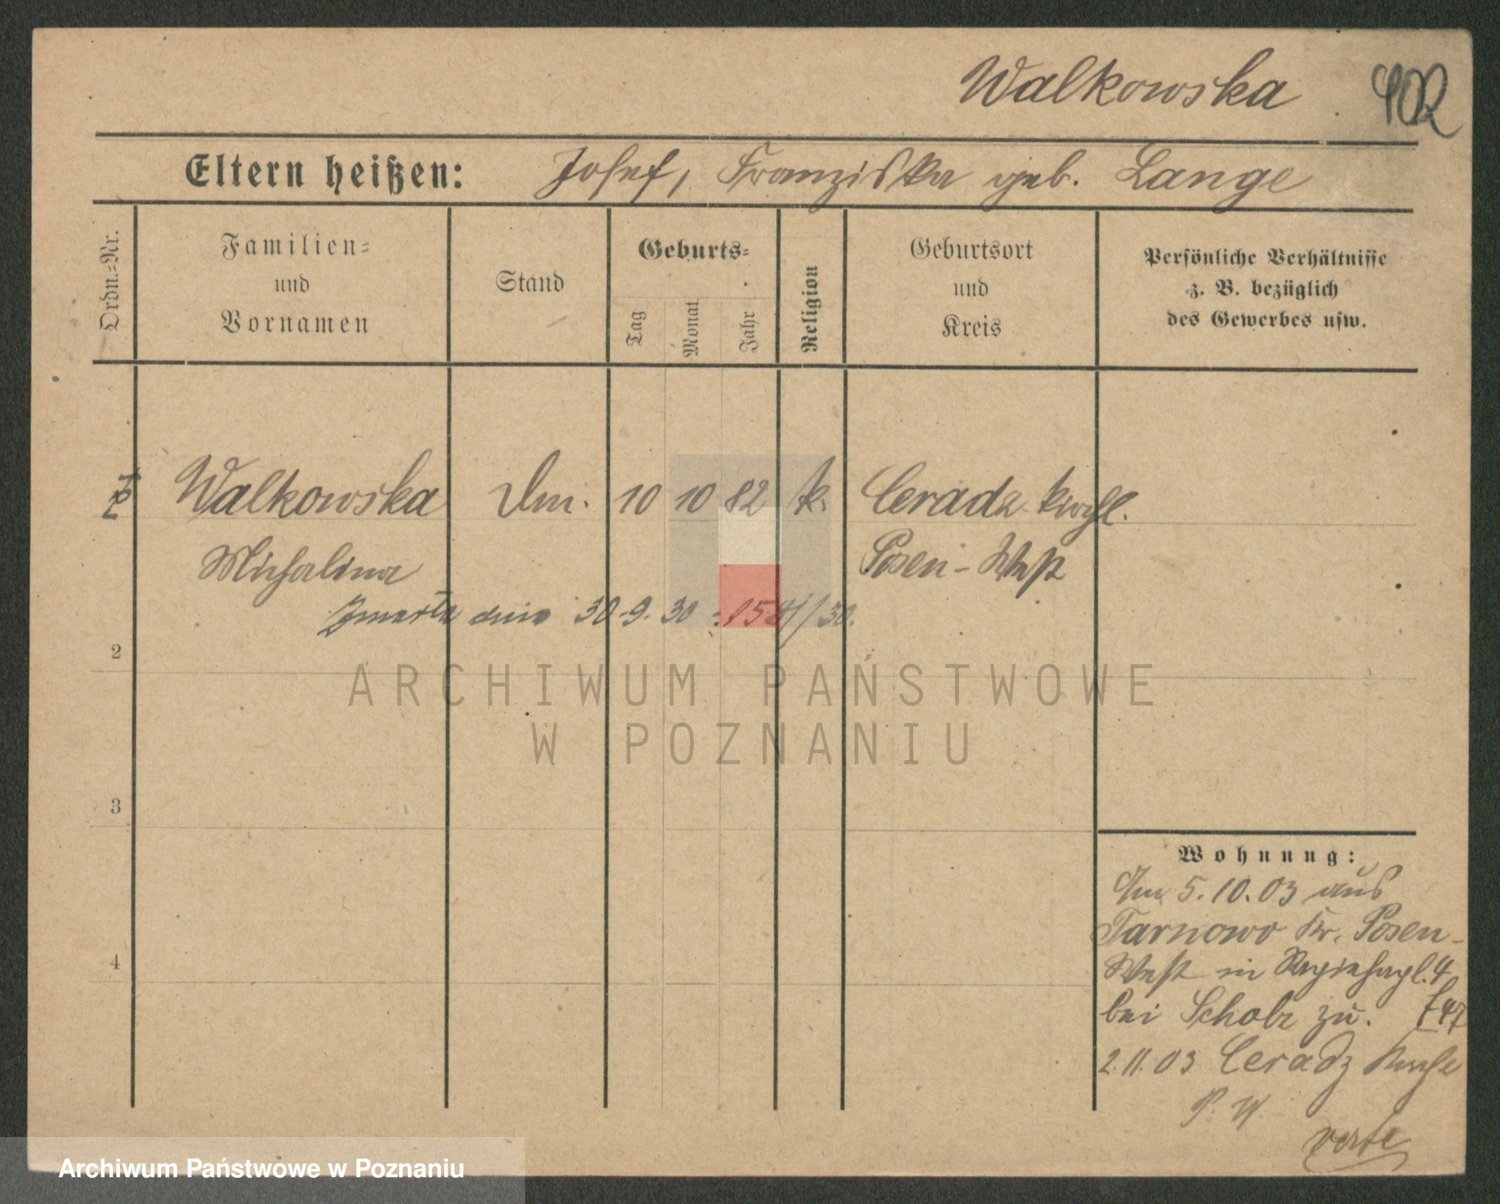 Walkowska 402
Eltern heißen: Josef, Franziska geb. Lange
Ordn.=Nr.
Familien=
und
Vornamen
Stand
Geburts=
Tag
Monat
Jahr
Religion
Geburtsort
und
Kreis
Persönliche Verhältnisse
z. B. bezüglich
des Gewerbes usw.
Walkowska 10 10 82 k. Ceradz
Michalina Posen-West
Zmarła dnia 30.9.30
2
3
4
ARCHIWUM PAŃSTWOWE
W POZNANIU
Wohnung:
Am 5.10.03 aus
Tarnowo Kr. Posen-
West in
bei Scholz zu.
2.11.03 Ceradz
P. W.
verte
Archiwum Państwowe w Poznaniu